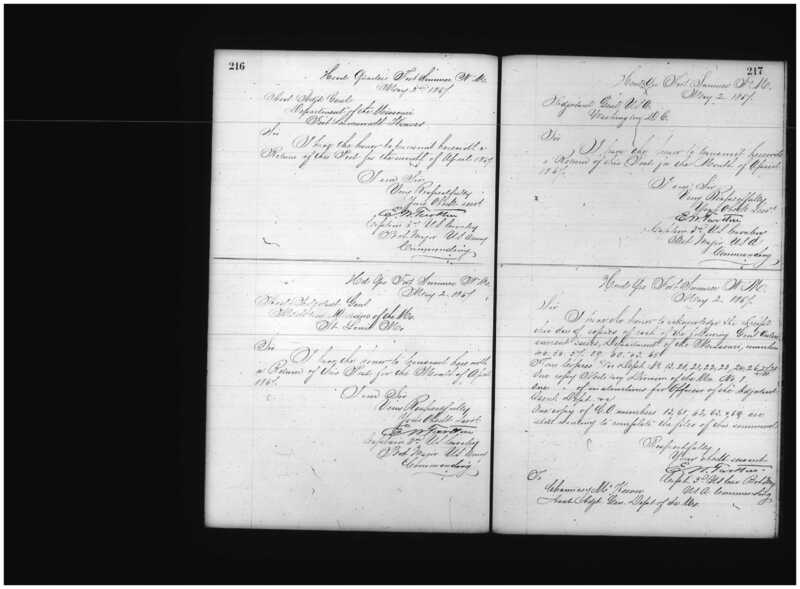 216
Head Quarters Fort Sumner N. M.
May 2nd 1867.
Asst. Adjt. Genl.
Department of the Missouri
Fort Leavenworth Kansas
Sir
I have the honor to transmit herewith a
Return of this Post for the month of April 1867.
I am Sir
Very Respectfully
Your Obdt. Servt.
Captain 3rd U.S. Cavalry
Bvt. Major U.S. Army
Commanding
Hd. Qrs. Fort Sumner N. M.
May 2, 1867
Asst. Adjutant Genl.
Military Division of the Mo.
St. Louis Mo.
Sir
I have the honor to transmit herewith
a Return of this Post for the Month of April
1867.
I am Sir
Very Respectfully
Your Obdt. Servt.
Captain 3rd U.S. Cavalry
Bvt. Major U.S. Army
Commanding
217
Head Qrs. Fort Sumner N. M.
May 2 1867.
Adjutant Genl. U.S.
Washington D.C.
Sir
I have the honor to transmit herewith
a Return of this Post for the Month of April
1867.
I am Sir
Very Respectfully
Your Obdt. Servt.
Captain 3rd U.S. Cavalry
Bvt. Major U.S.A.
Commanding
Head Qrs. Fort Sumner N. M.
May 2, 1867.
Sir
I have the honor to acknowledge the receipt
this day of copies of each of the following Genl. Orders
current series, Department of the Missouri, numbers
One copy Military Division of the Mo. No. 7.
one of instructions for Officers of the Adjutant
Genl. Dept.
One copy of G.O. numbers 12, 61, 62, 63, & 69 are
still wanting to complete the files of this command
Respectfully
Your obdt. servant
Capt. 3rd U.S. Cav. Bvt. Maj.
U.S.A. Commanding
To
Asst. Adjt. Gen. Dept. of the Mo.